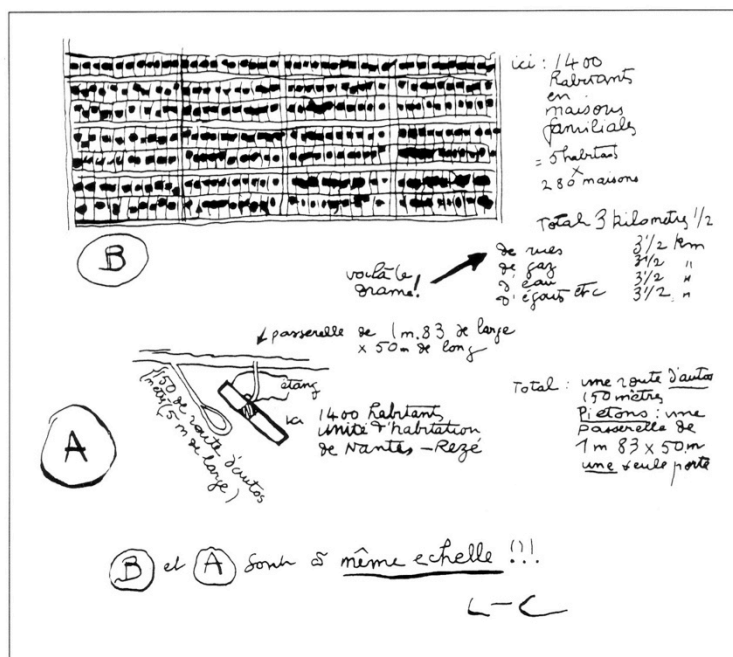 ici : 1400
habitants
en
maisons
familiales
= 5 habitants
×
280 maisons
Total 3 kilomètres 1/2
de rues 3 1/2 km
de gaz 3 1/2 "
d'eau 3 1/2 "
d'égouts etc 3 1/2 "
B
voilà le
drame!
passerelle de 1m.83 de large
× 50m de long
étang
150 de route d'autos
mètres (5 m de large)
A
ici
1400 habitants
Unité d'habitation
de Nantes-Rezé
Total : une route d'autos
150 mètres
Piétons : une
passerelle de
1m 83 × 50.m
une seule porte
B et A sont à même echelle !!!
L-C